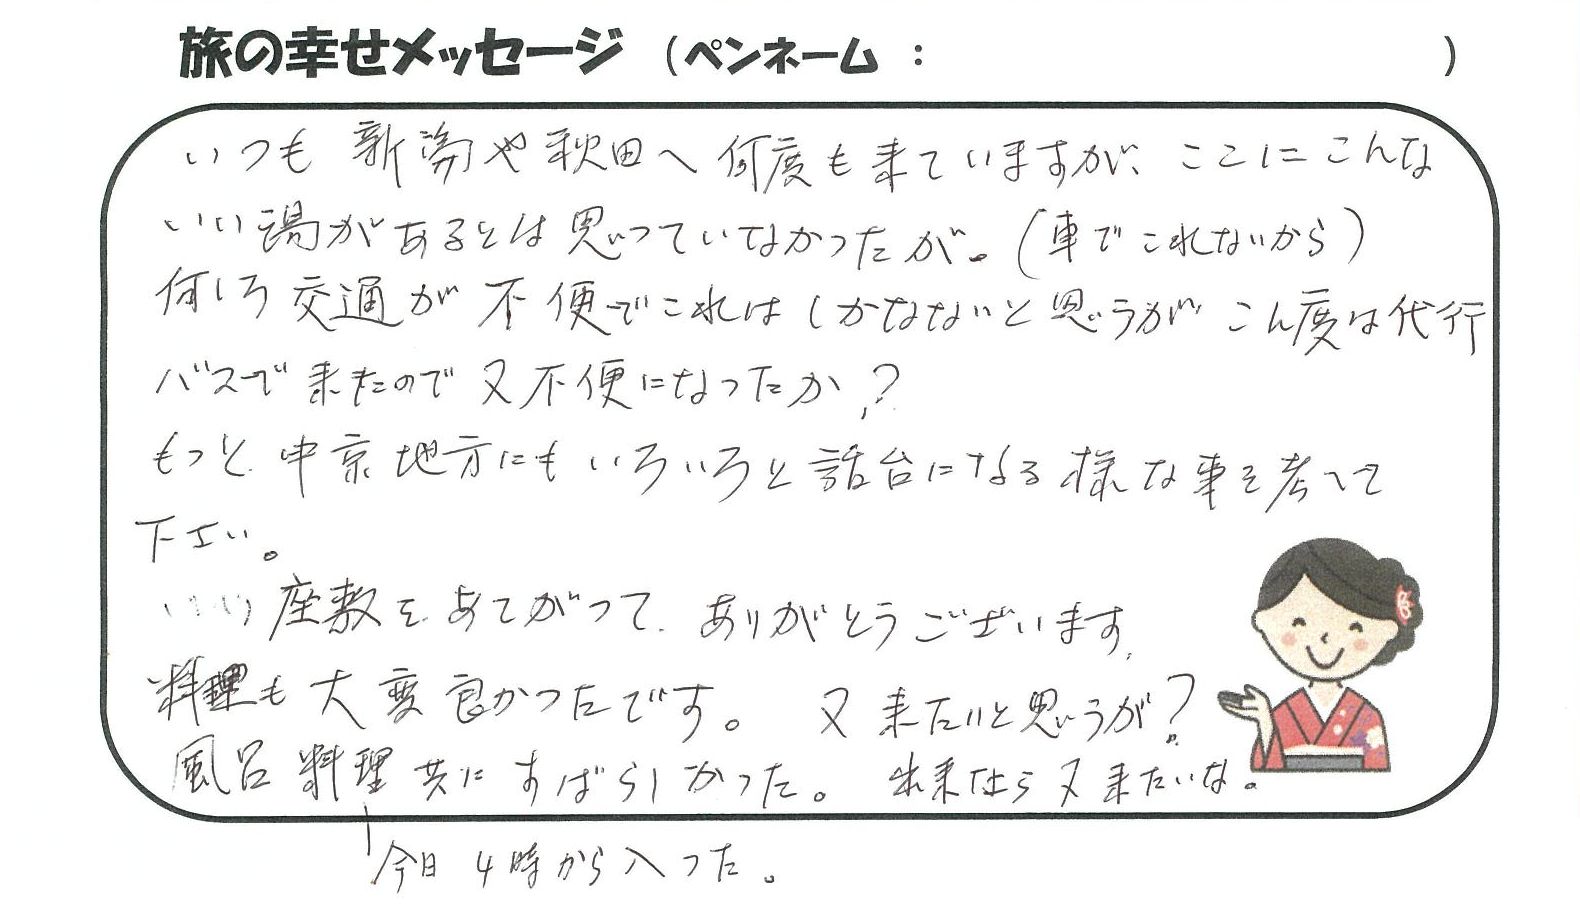 旅の幸せメッセージ (ペンネーム : )
いつも 新潟や秋田へ何度も来ていますが、ここにこんな
いい湯があるとは思っていなかったが。(車でこれないから)
何しろ交通が不便でこれはしかなないと思うが こん度は代行
バスで来たので又不便になったか?
もっと中京地方にもいろいろと話台になる様な事を考へて
下さい。
座敷を あてがって ありがとうございます
料理も大変良かったです。 又来たいと思うが?
風呂料理共にすばらしかった。 出来たら又来たいな。
今日4時から入った。